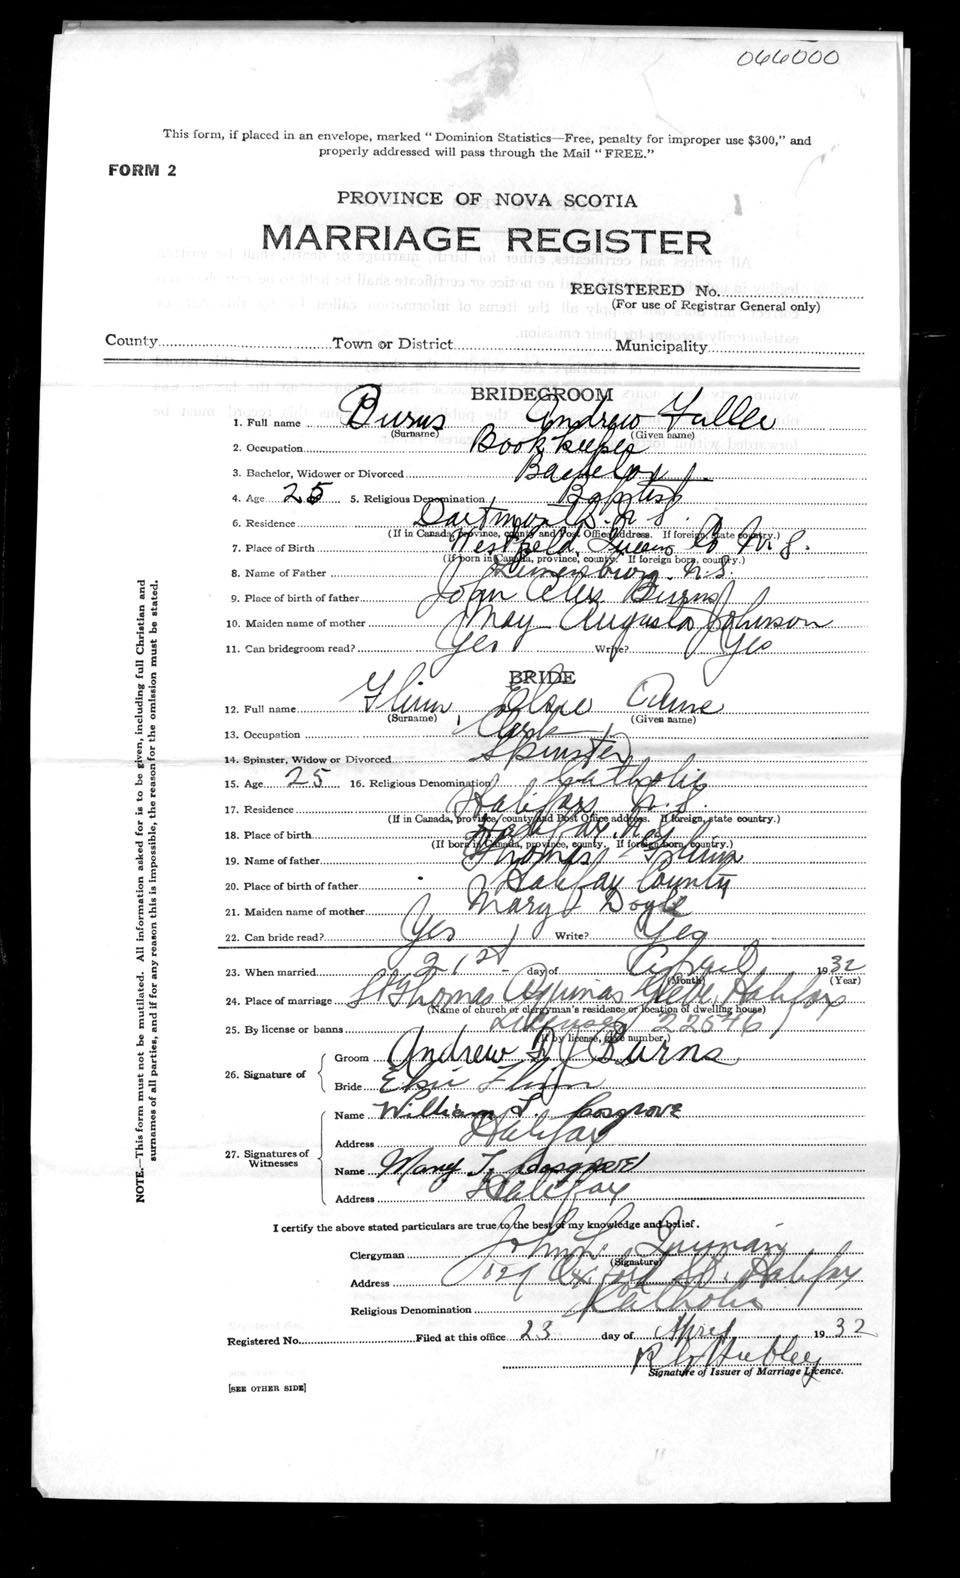 066000
This form, if placed in an envelope, marked " Dominion Statistics—Free, penalty for improper use $300," and
properly addressed will pass through the Mail " FREE."
FORM 2
PROVINCE OF NOVA SCOTIA
MARRIAGE REGISTER
REGISTERED No.
(For use of Registrar General only)
County Town or District Municipality
BRIDEGROOM
1. Full name Burns Andrew Fuller
(Surname) (Given name)
2. Occupation Bookkeeper
3. Bachelor, Widower or Divorced Bachelor
4. Age 25 5. Religious Denomination Baptist
6. Residence Dartmouth. N.S.
(If in Canada, province, county and Post Office address. If foreign, state country.)
7. Place of Birth Westfield, Queens Co N.S.
(If born in Canada, province, county. If foreign born, country.)
8. Name of Father Lunenburg. N.S.
9. Place of birth of father John Alex Burns
10. Maiden name of mother May Augusta Johnson
11. Can bridegroom read? Yes Write? Yes
BRIDE
12. Full name Flinn Elsie Anne
(Surname) (Given name)
13. Occupation Clerk
14. Spinster, Widow or Divorced Spinster
15. Age 25 16. Religious Denomination Catholic
17. Residence Halifax N.S.
(If in Canada, province/county and Post Office address. If foreign, state country.)
18. Place of birth Halifax. N.S.
(If born in Canada, province, county. If foreign born, country.)
19. Name of father Thomas Flinn
20. Place of birth of father Halifax County
21. Maiden name of mother Mary Doyle
22. Can bride read? Yes Write? Yes
23. When married 21st day of April 1932
(Month) (Year)
24. Place of marriage St Thomas Aquinas Glebe, Halifax
(Name of church or clergyman's residence or location of dwelling house)
25. By license or banns License 22546
(If by license, give number.)
26. Signature of
Groom Andrew F. Burns
Bride Elsie Flinn
27. Signatures of Witnesses
Name William L. Cosgrove
Address Halifax
Name Mary T. Cosgrove
Address Halifax
I certify the above stated particulars are true to the best of my knowledge and belief.
Clergyman John L. Quinan
(Signature)
Address 127 Oxford St. Halifax
Religious Denomination Catholic
Registered No. Filed at this office 23 day of April 1932
Hubley
Signature of Issuer of Marriage Licence.
[SEE OTHER SIDE]
NOTE.—This form must not be mutilated. All information asked for is to be given, including full Christian and
surnames of all parties, and if for any reason this is impossible, the reason for the omission must be stated.